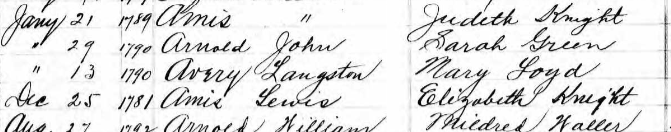 Jany 21 1789 Amis " Judeth Knight
" 29 1790 Arnold John Sarah Green
" 13 1790 Avery Langston Mary Loyd
Dec 25 1781 Amis Lewis Elizabeth Knight
Aug. 27 1792 Arnold William Mildred Waller